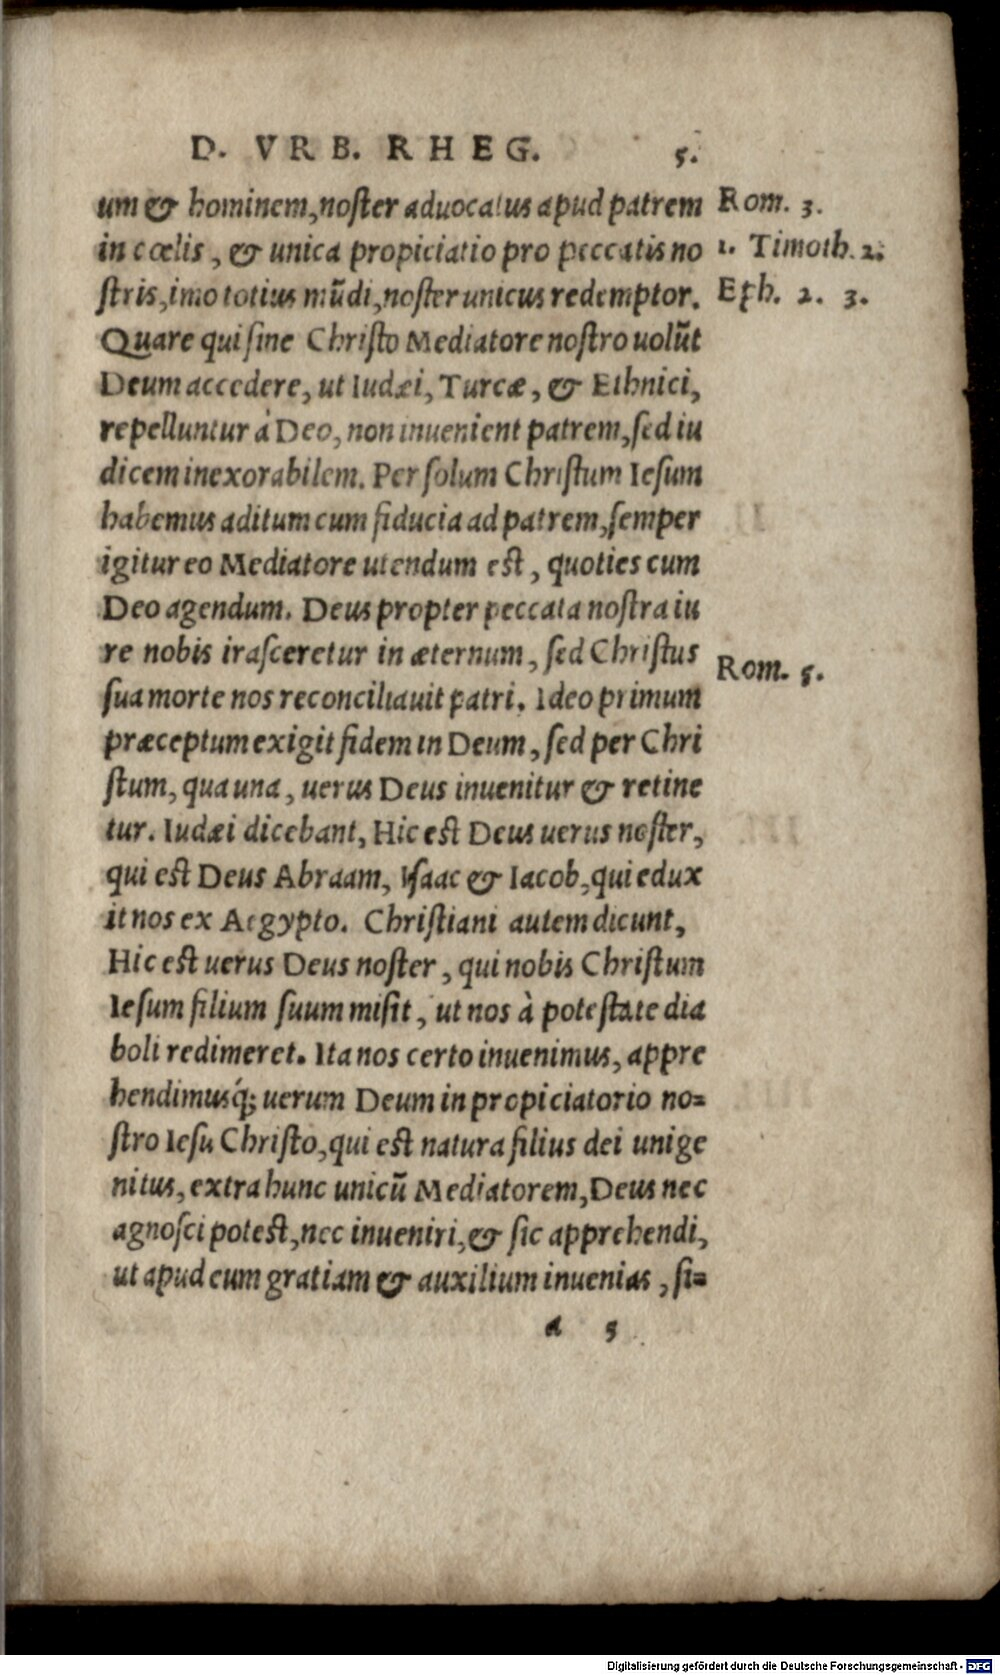 D. VRB. RHEG. 5.
um & hominem, noster aduocatus apud patrem
Rom. 3.
in cœlis, & unica propiciatio pro peccatis no
1. Timoth. 2.
stris, imo totius mũdi, noster unicus redemptor.
Eph. 2. 3.
Quare qui sine Christo Mediatore nostro uolũt
Deum accedere, ut Iudæi, Turcæ, & Ethnici,
repelluntur à Deo, non inuenient patrem, sed iu
dicem inexorabilem. Per solum Christum Iesum
habemus aditum cum fiducia ad patrem, semper
igitur eo Mediatore utendum est, quoties cum
Deo agendum. Deus propter peccata nostra iu
re nobis irasceretur in æternum, sed Christus
Rom. 5.
sua morte nos reconciliauit patri. Ideo primum
præceptum exigit fidem in Deum, sed per Chri
stum, qua una, uerus Deus inuenitur & retine
tur. Iudæi dicebant, Hic est Deus uerus noster,
qui est Deus Abraam, Isaac & Iacob, qui edux
it nos ex Aegypto. Christiani autem dicunt,
Hic est uerus Deus noster, qui nobis Christum
Iesum filium suum misit, ut nos à potestate dia
boli redimeret. Ita nos certo inuenimus, appre
hendimusq́; uerum Deum in propiciatorio no=
stro Iesu Christo, qui est natura filius dei unige
nitus, extra hunc unicũ Mediatorem, Deus nec
agnosci potest, nec inueniri, & sic apprehendi,
ut apud eum gratiam & auxilium inuenias, si=
a 5
Digitalisierung gefördert durch die Deutsche Forschungsgemeinschaft - DFG